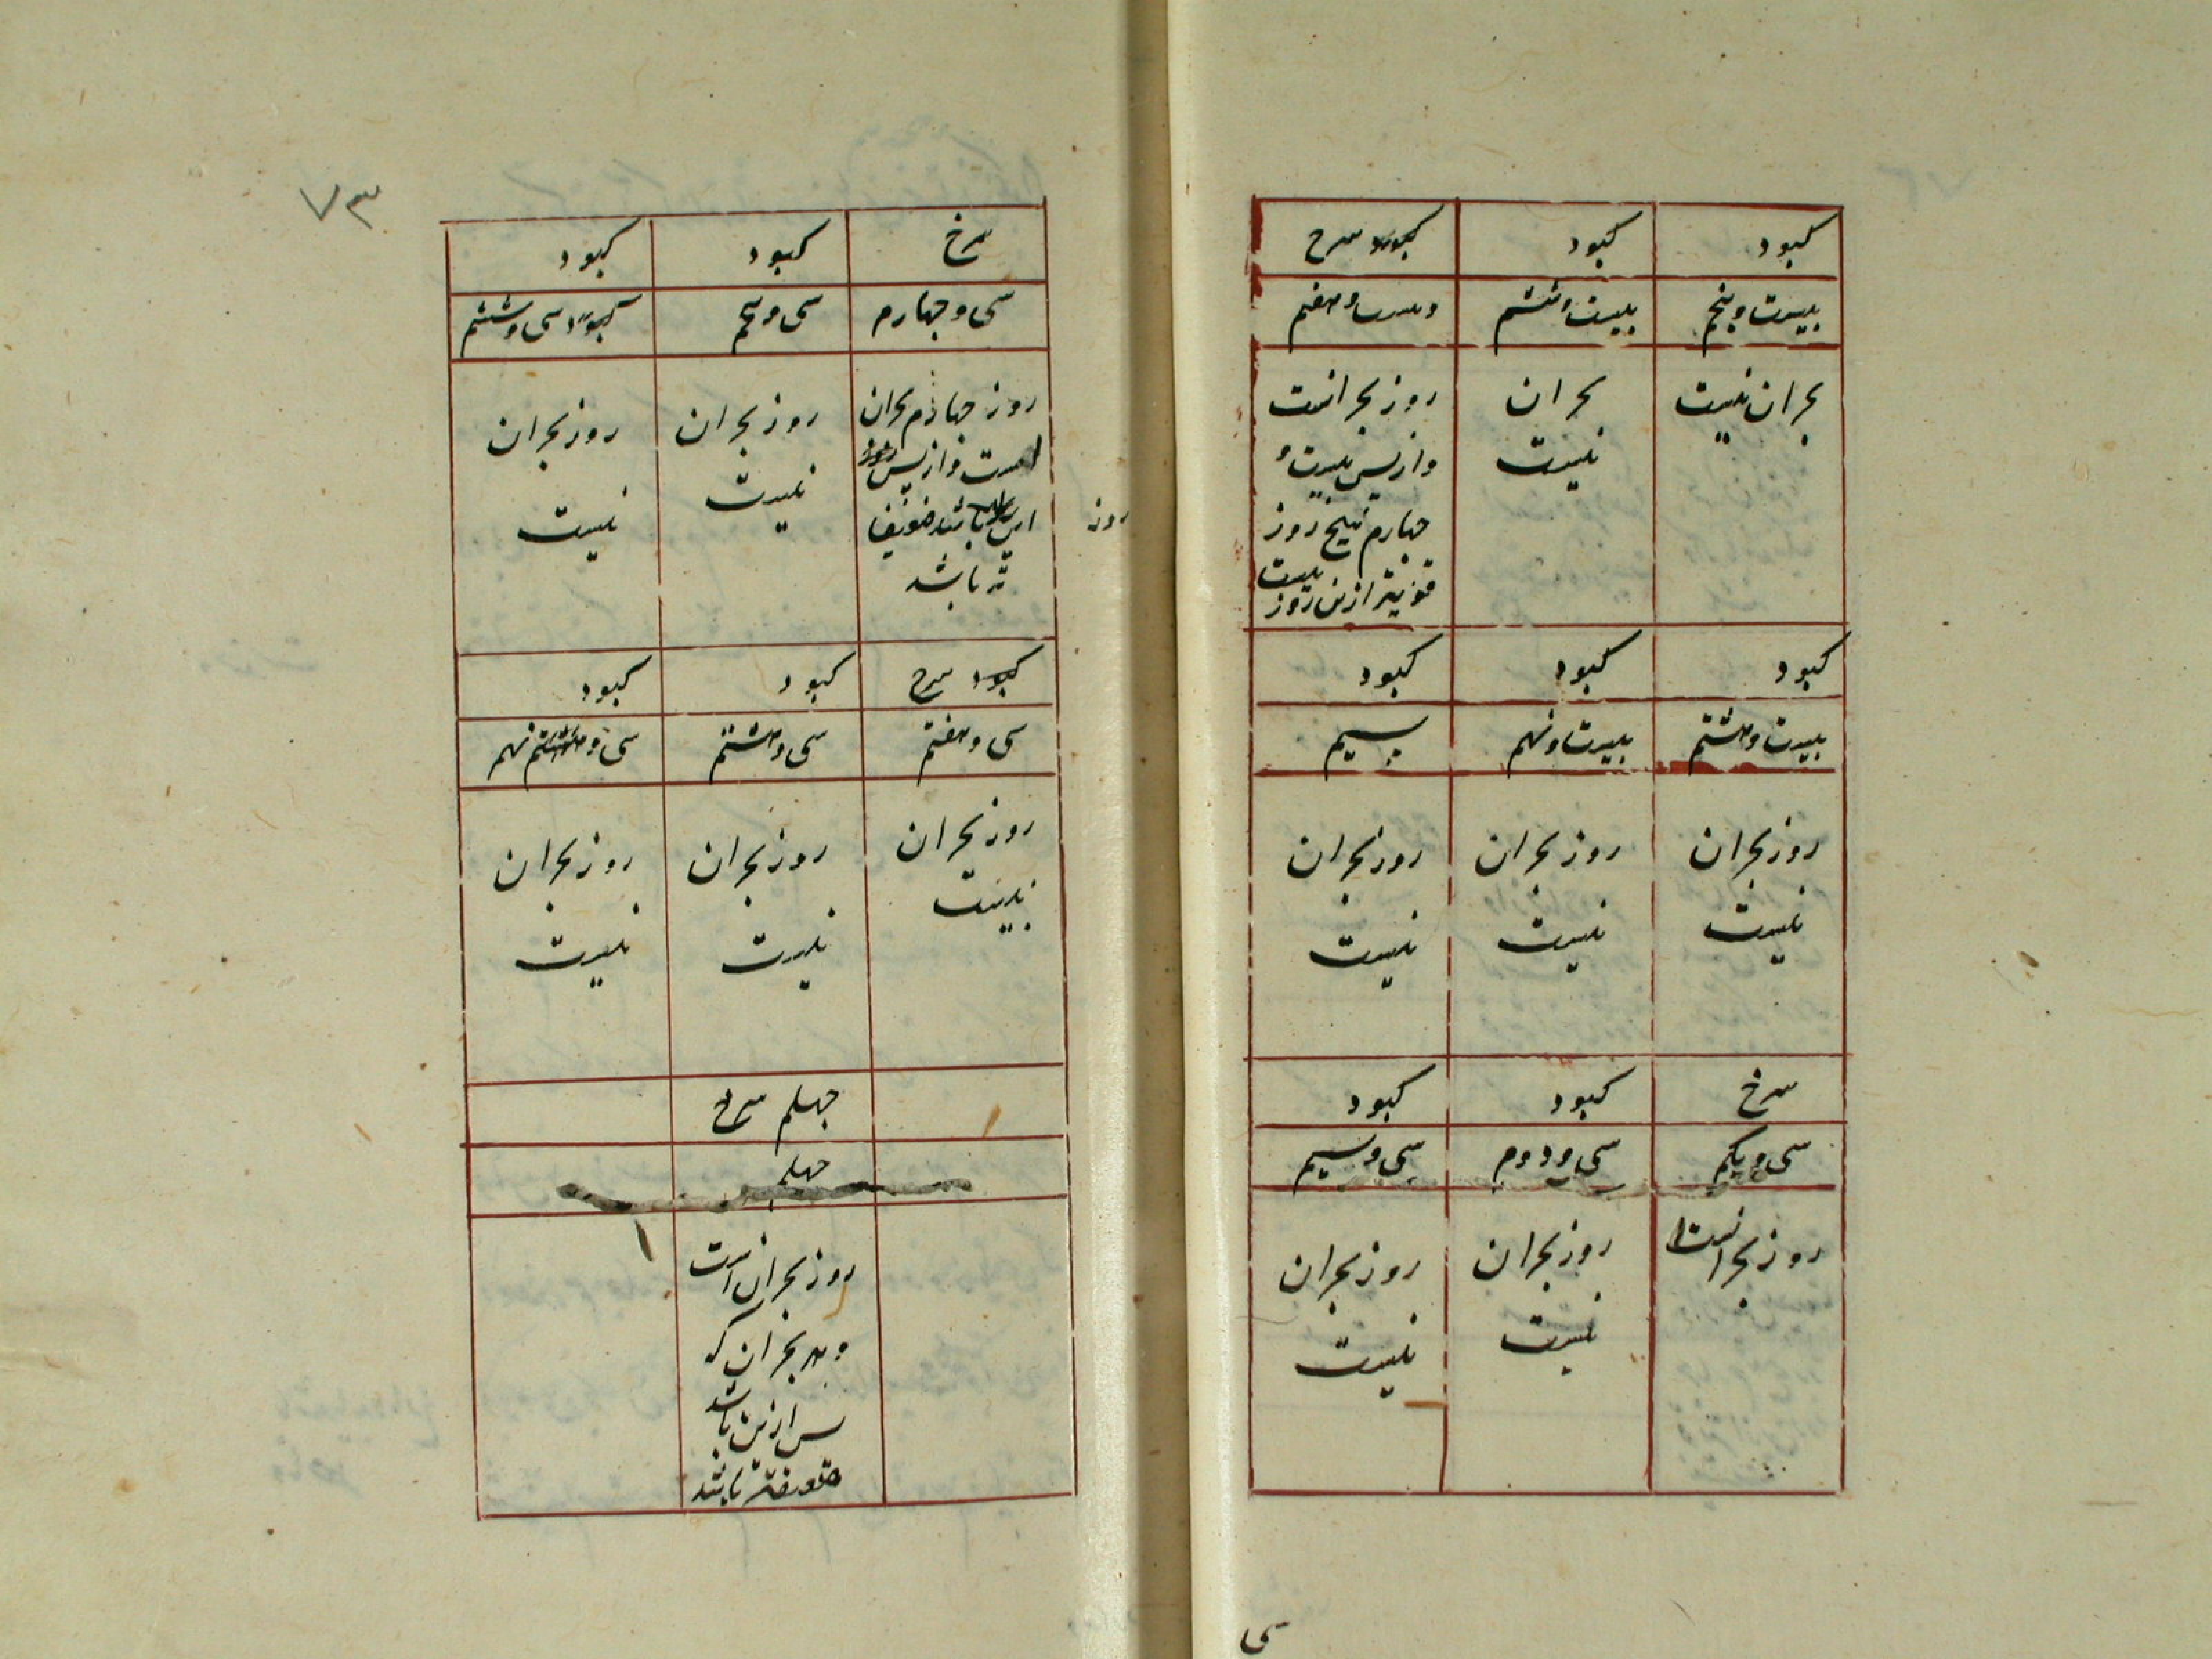 کبود
کبود
سرخ
بیست و پنجم
بیست و ششم
و بیست و هفتم
بحران نیست
بحران
نیست
روز بحرانست
و از پس بیست و
چهارم هیچ روز
قویتر ازین روز نیست
کبود
کبود
کبود
بیست و هشتم
بیست و نهم
سیم
روز بحران
نیست
روز بحران
نیست
روز بحران
نیست
سرخ
کبود
کبود
سی و یکم
سی و دوم
سی و سیم
روز بحرانست
روز بحران
نیست
روز بحران
نیست
سی
۷۳
سرخ
کبود
کبود
سی و چهارم
سی و پنجم
سی و ششم
روز چهارم بحران
است و از پس
این باشد ضعیف
تر باشد
روز
روز بحران
نیست
روز بحران
نیست
سرخ
کبود
کبود
سی و هفتم
سی و هشتم
سی و نهم
روز بحران
نیست
روز بحران
نیست
روز بحران
نیست
چهلم سرخ
چهلم
روز بحران است
و هر بحران که
پس ازین باشد
ضعیفتر باشد